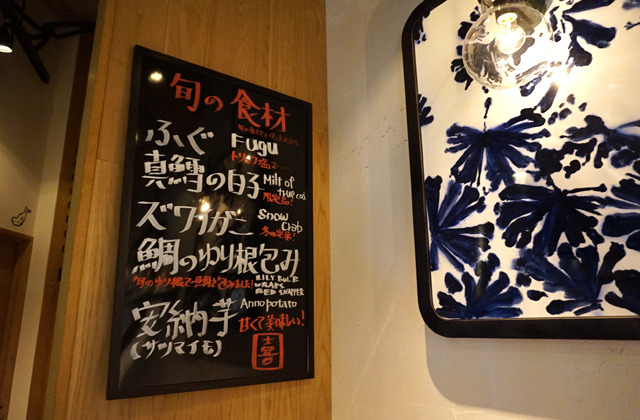 旬の食材
ふぐ Fugu
トリュフ塩で
真鱈の白子 Milt of true cod
ズワイガニ Snow Crab
冬の定番!
鯛のゆり根包み LILY BULB WRAPS RED SNAPPER
旬のゆり根で真鯛を包みました!
安納芋 Anno potato
(サツマイモ) 甘くて美味しい!
喜